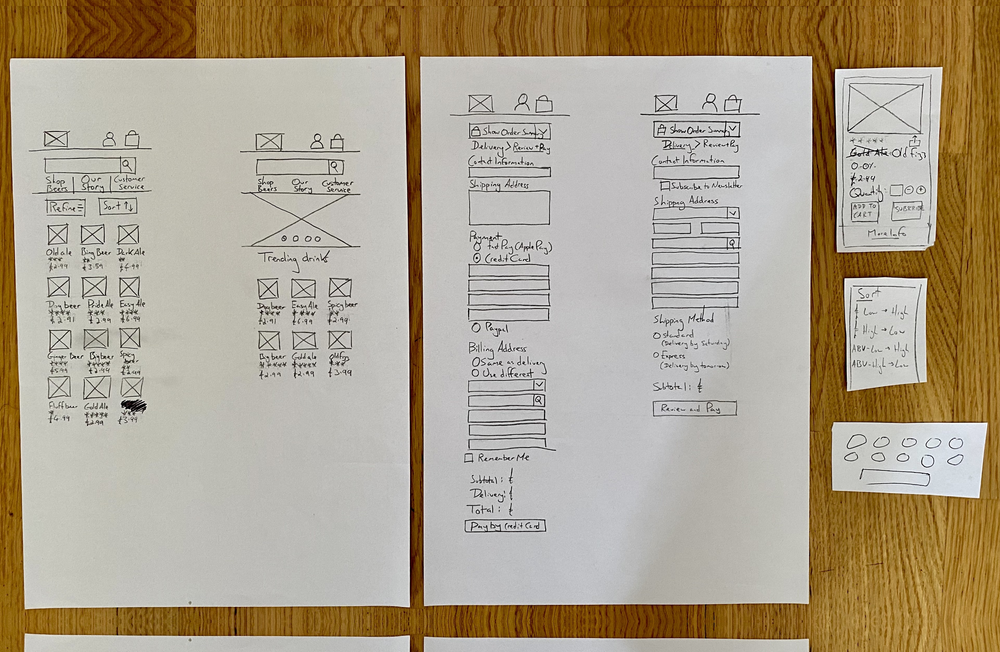 Shop Beers
Our Story
Customer Service
Refine
Sort ↑↓
Old ale
Bing Beer
Dark Ale
£2.99
£3.59
£6.99
Dry beer
Pride Ale
Easy Ale
£2.91
£2.99
£6.99
Ginger Beer
Big beer
Spicy beer
£5.99
£2.99
£2.99
Fluff beer
Gold Ale
£4.99
£2.99
£3.99
Shop Beers
Our Story
Customer Service
Trending drinks
Dry beer
Easy Ale
Spicy beer
£2.91
£6.99
£2.99
Big beer
Gold ale
Old figs
£2.99
£2.99
£3.99
Show Order Summary
Delivery > Review + Pay
Contact Information
Shipping Address
Payment
(Apple Pay)
Credit Card
Paypal
Billing Address
Same as delivery
Use different
Remember Me
Subtotal: £
Delivery: £
Total: £
Pay by Credit Card
Show Order Summary
Delivery > Review + Pay
Contact Information
Subscribe to Newsletter
Shipping Address
Shipping Method
Standard
(Delivery by Saturday)
Express
(Delivery by tomorrow)
Subtotal: £
Review and Pay
Gold Ale Old figs
0.0%
£2.49
Quantity: - +
ADD TO CART
More Info
Sort
£ Low → High
£ High → Low
ABV-Low → High
ABV-High → Low